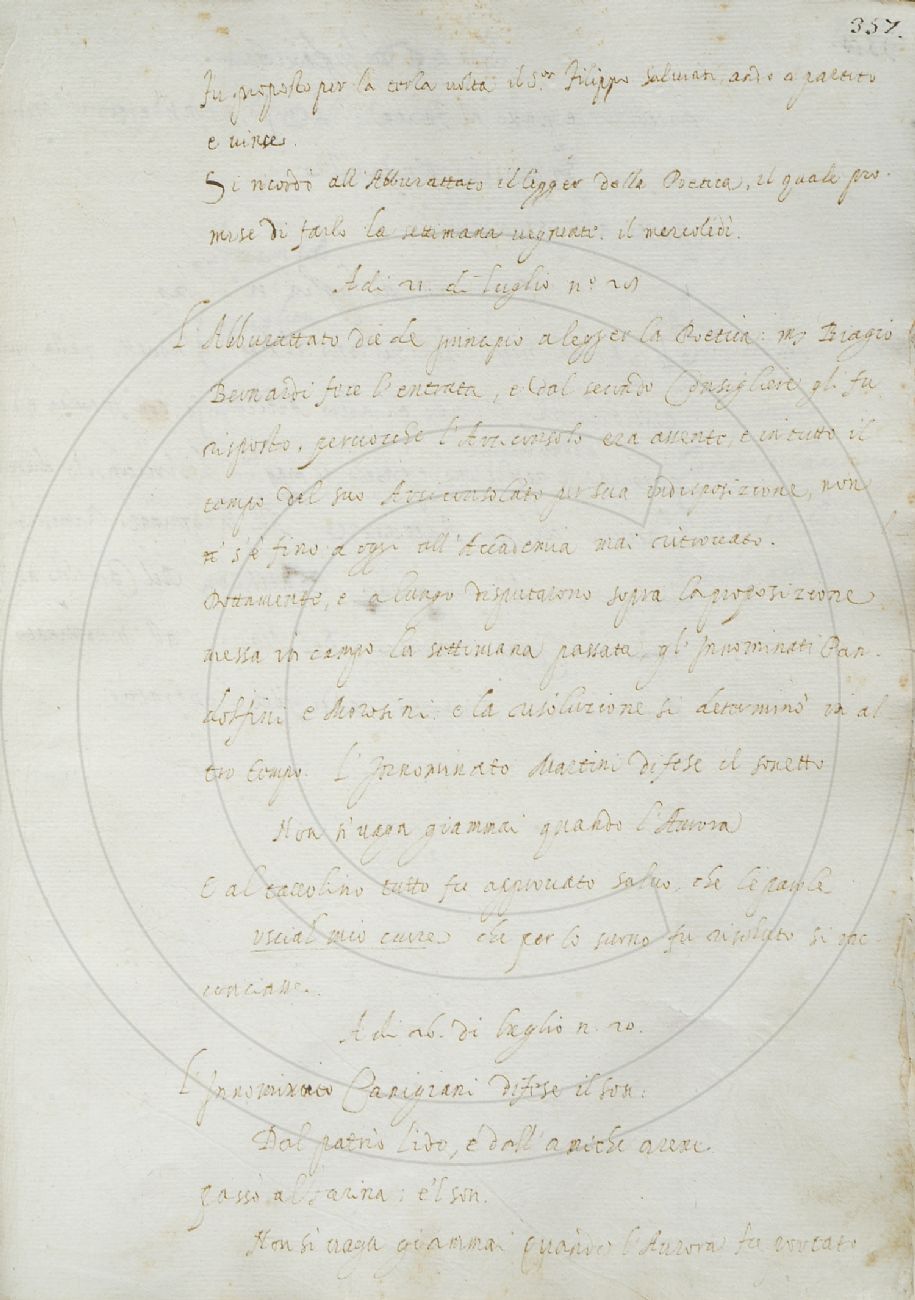 357.
Fu proposto per la terza volta il S.or Filippo Salviati, andò a partito
e vinse.
Si ricordò all'Abburattato il legger della Poetica, il quale pro-
mise di farlo la settimana vegnente il mercoledì.
A di 21. di luglio n.º 20
L'Abburattato diede principio a legger la Poetica: mr Biagio
Bernardi fece l'entrata, e dal secondo Consigliere gli fu
risposto, perciocche l'Arciconsolo era assente, e in tutto il
tempo del suo Arciconsolato per sua indisposizione, non
s'è fino a oggi all'Accademia mai ritrovato.
Dottamente, e a lungo disputarono sopra la proposizione
messa in campo la settimana passata gl'Innominati Pan-
dolfini e Morosini: e la risoluzione si determinò in al
tro tempo. L'Innominato Martini difese il sonetto
Non sì vaga giammai quando l'Aurora
E al taccolino tutto fu approvato salvo, che le parole
uscial mio cuore che per lo surno fu risoluto si rac-
conciasse.
A di 26. di luglio n. 20.
L'Innominato Canigiani difese il son:
Dal patrio lido, e dall'amiche arene
passò all'farina: e'l son.
Non si vaga giammai quando l'Aurora fu portato